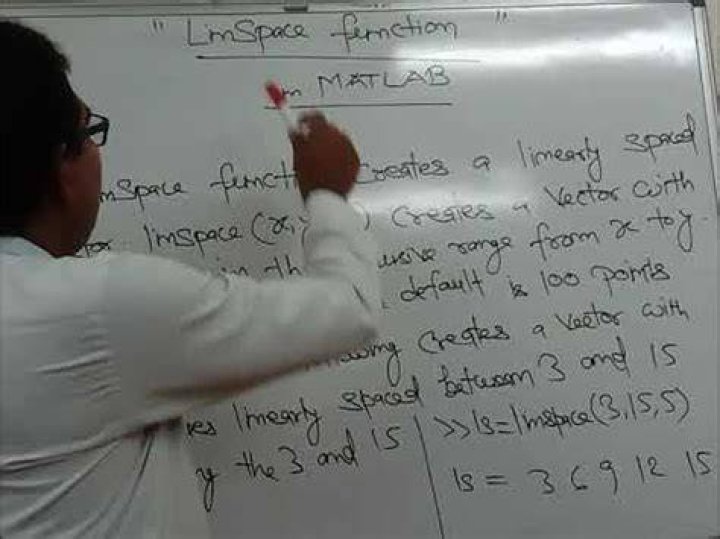 " LinSpace function "
in MATLAB
creates a linearly spaced
linspace (x, ) creates a vector with
range from x to y.
default is 100 points
creates a vector with
linearly spaced between 3 and 15
the 3 and 15
>> ls = linspace(3,15,5)
ls = 3 6 9 12 15